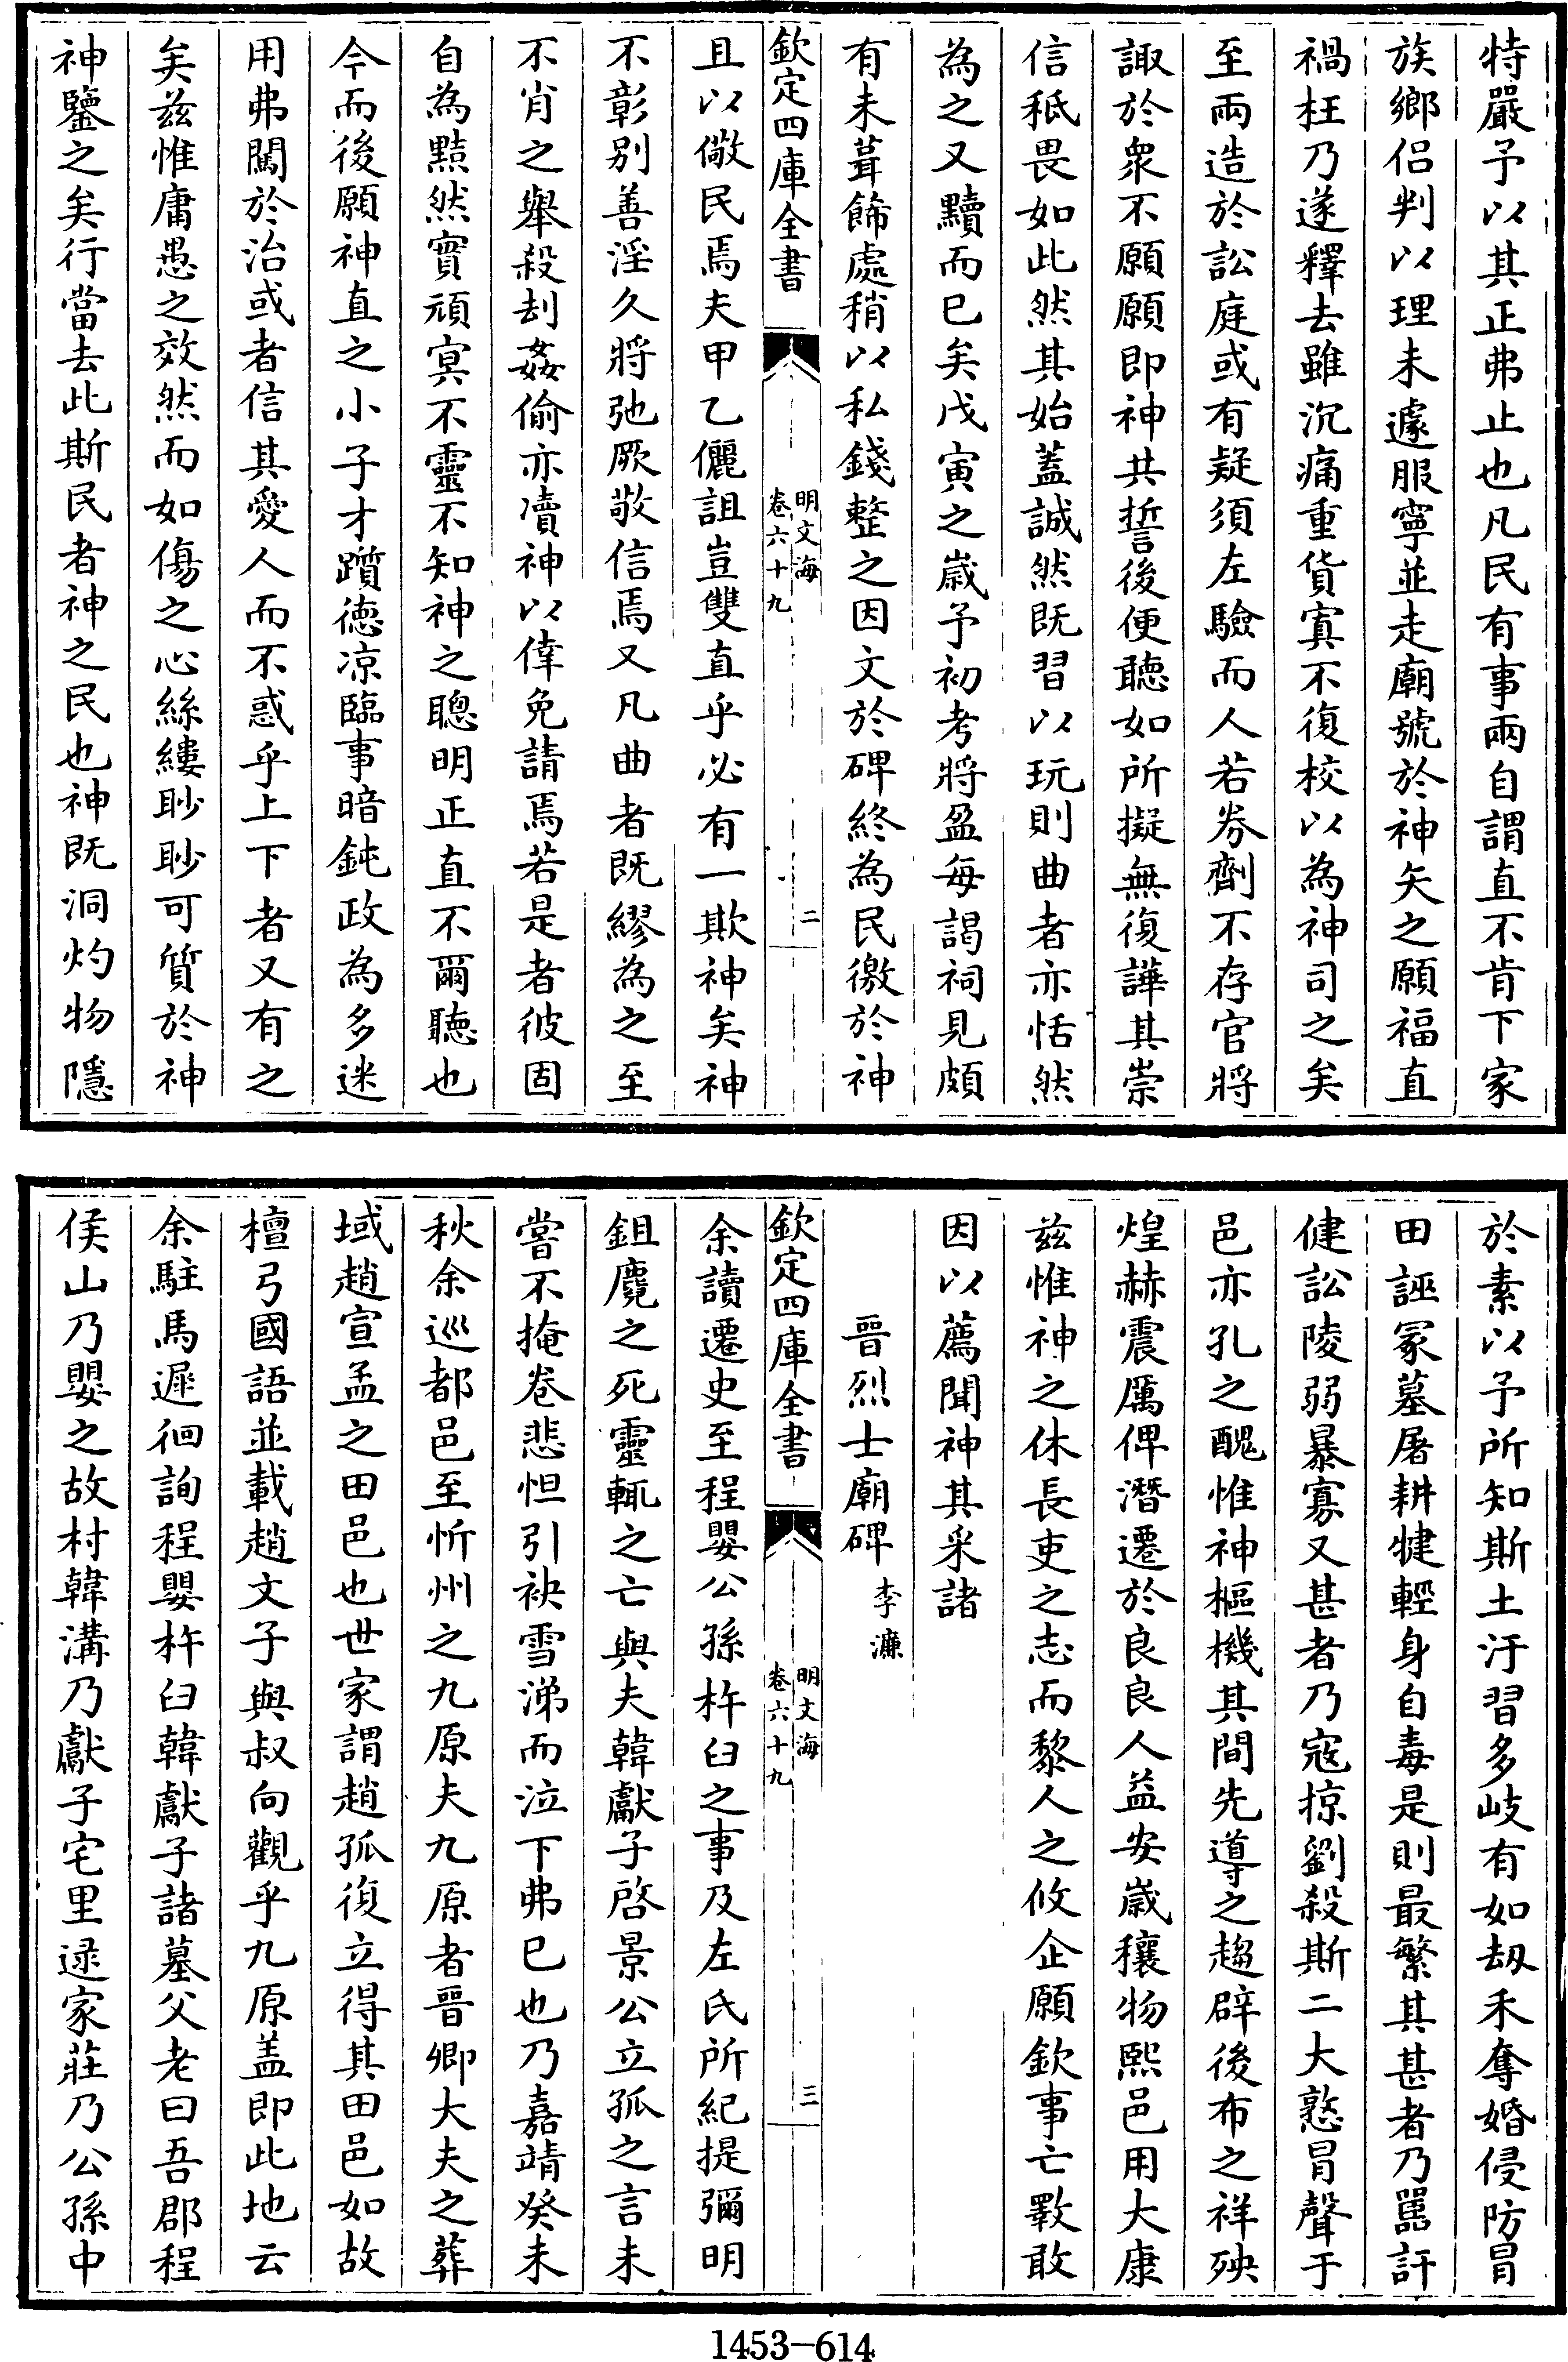 特嚴予以其正弗止也凡民有事兩自謂直不肯下家
族鄉侣判以理未遽服寧並走廟號於神矢之願福直
禍枉乃遂釋去雖沉痛重貨寘不復校以為神司之矣
至兩造於訟庭或有疑須左驗而人若券劑不存官將
諏於衆不願願即神共誓後便聽如所擬無復譁其崇
信秪畏如此然其始蓋誠然既習以玩則曲者亦恬然
為之又黷而已矣戊寅之嵗予初考將盈每謁祠見頗
有未葺飾處稍以私錢整之因文於碑終為民徼於神
欽定四庫全書
明文海
卷六十九
二
且以儆民焉夫甲乙儷詛豈雙直乎必有一欺神矣神
不彰别善淫久將弛厥敬信焉又凡曲者既繆為之至
不肖之舉殺刦姦偷亦凟神以倖免請焉若是者彼固
自為黠然實頑冥不靈不知神之聰明正直不爾聽也
今而後願神直之小子才躓徳凉臨事暗鈍政為多迷
用弗闖於治或者信其愛人而不惑乎上下者又有之
矣兹惟庸愚之效然而如傷之心絲縷眇眇可質於神
神鑒之矣行當去此斯民者神之民也神既洞灼物隱
於素以予所知斯土汙習多岐有如刼禾奪婚侵防冒
田誣冢墓屠耕犍輕身自毒是則最繁其甚者乃嚚訐
健訟陵弱暴寡又甚者乃寇掠劉殺斯二大憝冒聲于
邑亦孔之醜惟神樞機其間先導之趨辟後布之祥殃
煌赫震厲俾潛遷於良良人益安嵗穰物熙邑用大康
兹惟神之休長吏之志而黎人之攸企願欽事亡斁敢
因以薦聞神其采諸
晉烈士廟碑 李濂
欽定四庫全書
明文海
卷六十九
三
余讀遷史至程嬰公孫杵臼之事及左氏所紀提彌明
鉏麑之死靈輒之亡與夫韓獻子啓景公立孤之言未
嘗不掩卷悲怛引袂雪涕而泣下弗已也乃嘉靖癸未
秋余巡都邑至忻州之九原夫九原者晉卿大夫之葬
域趙宣孟之田邑也世家謂趙孤復立得其田邑如故
檀弓國語並載趙文子與叔向觀乎九原盖即此地云
余駐馬遲徊詢程嬰杵臼韓獻子諸墓父老曰吾郡程
侯山乃嬰之故村韓溝乃獻子宅里逯家莊乃公孫中
1453-614